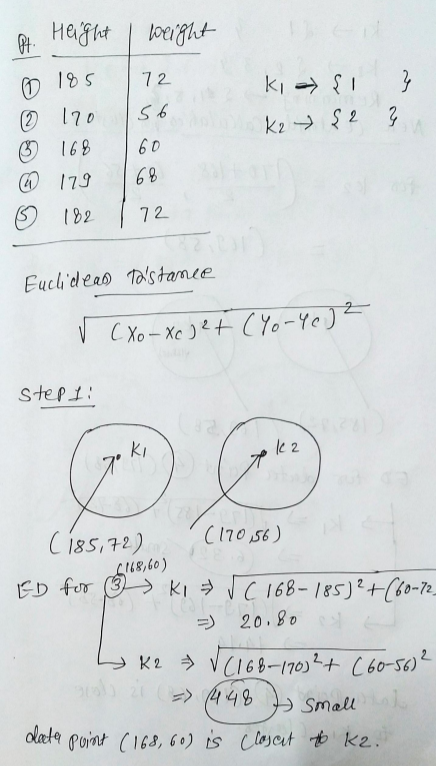 Pt. Height weight
① 185 72 K1 → { 1 }
② 170 56 K2 → { 2 }
③ 168 60
④ 179 68
⑤ 182 72
Euclidean Distance
√(X0-Xc)2+(Y0-Yc)2
Step 1:
K1 K2
(185,72) (170,56)
(168,60)
ED for ③ → K1 ⇒ √(168-185)2+(60-72
⇒ 20.80
→ K2 ⇒ √(168-170)2+(60-56)2
⇒ 4.48 → Small
data point (168,60) is closest to K2.